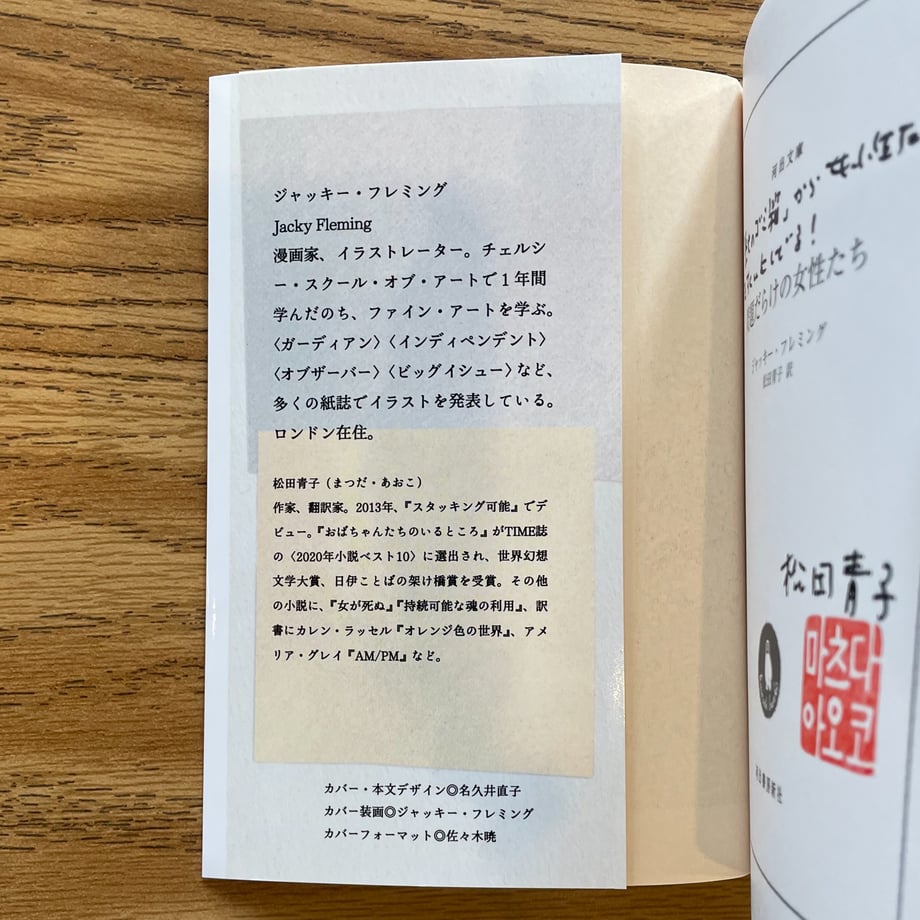 ジャッキー・フレミング
Jacky Fleming
漫画家、イラストレーター。チェルシ
ー・スクール・オブ・アートで1年間
学んだのち、ファイン・アートを学ぶ。
〈ガーディアン〉〈インディペンデント〉
〈オブザーバー〉〈ビッグイシュー〉など、
多くの紙誌でイラストを発表している。
ロンドン在住。
松田青子(まつだ・あおこ)
作家、翻訳家。2013年、『スタッキング可能』でデ
ビュー。『おばちゃんたちのいるところ』がTIME誌
の〈2020年小説ベスト10〉に選出され、世界幻想
文学大賞、日伊ことばの架け橋賞を受賞。その他
の小説に、『女が死ぬ』『持続可能な魂の利用』、訳
書にカレン・ラッセル『オレンジ色の世界』、アメ
リア・グレイ『AM/PM』など。
カバー・本文デザイン◎名久井直子
カバー装画◎ジャッキー・フレミング
カバーフォーマット◎佐々木暁
河出文庫
だらけの女性たち
ジャッキー・フレミング
松田青子 訳
松田青子
마츠다
아오코
河出書房新社